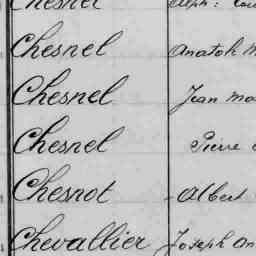 Chesnel
Chesnel Anatole
Chesnel Jean
Chesnel Pierre
Chesnot Albert
Chevallier Joseph